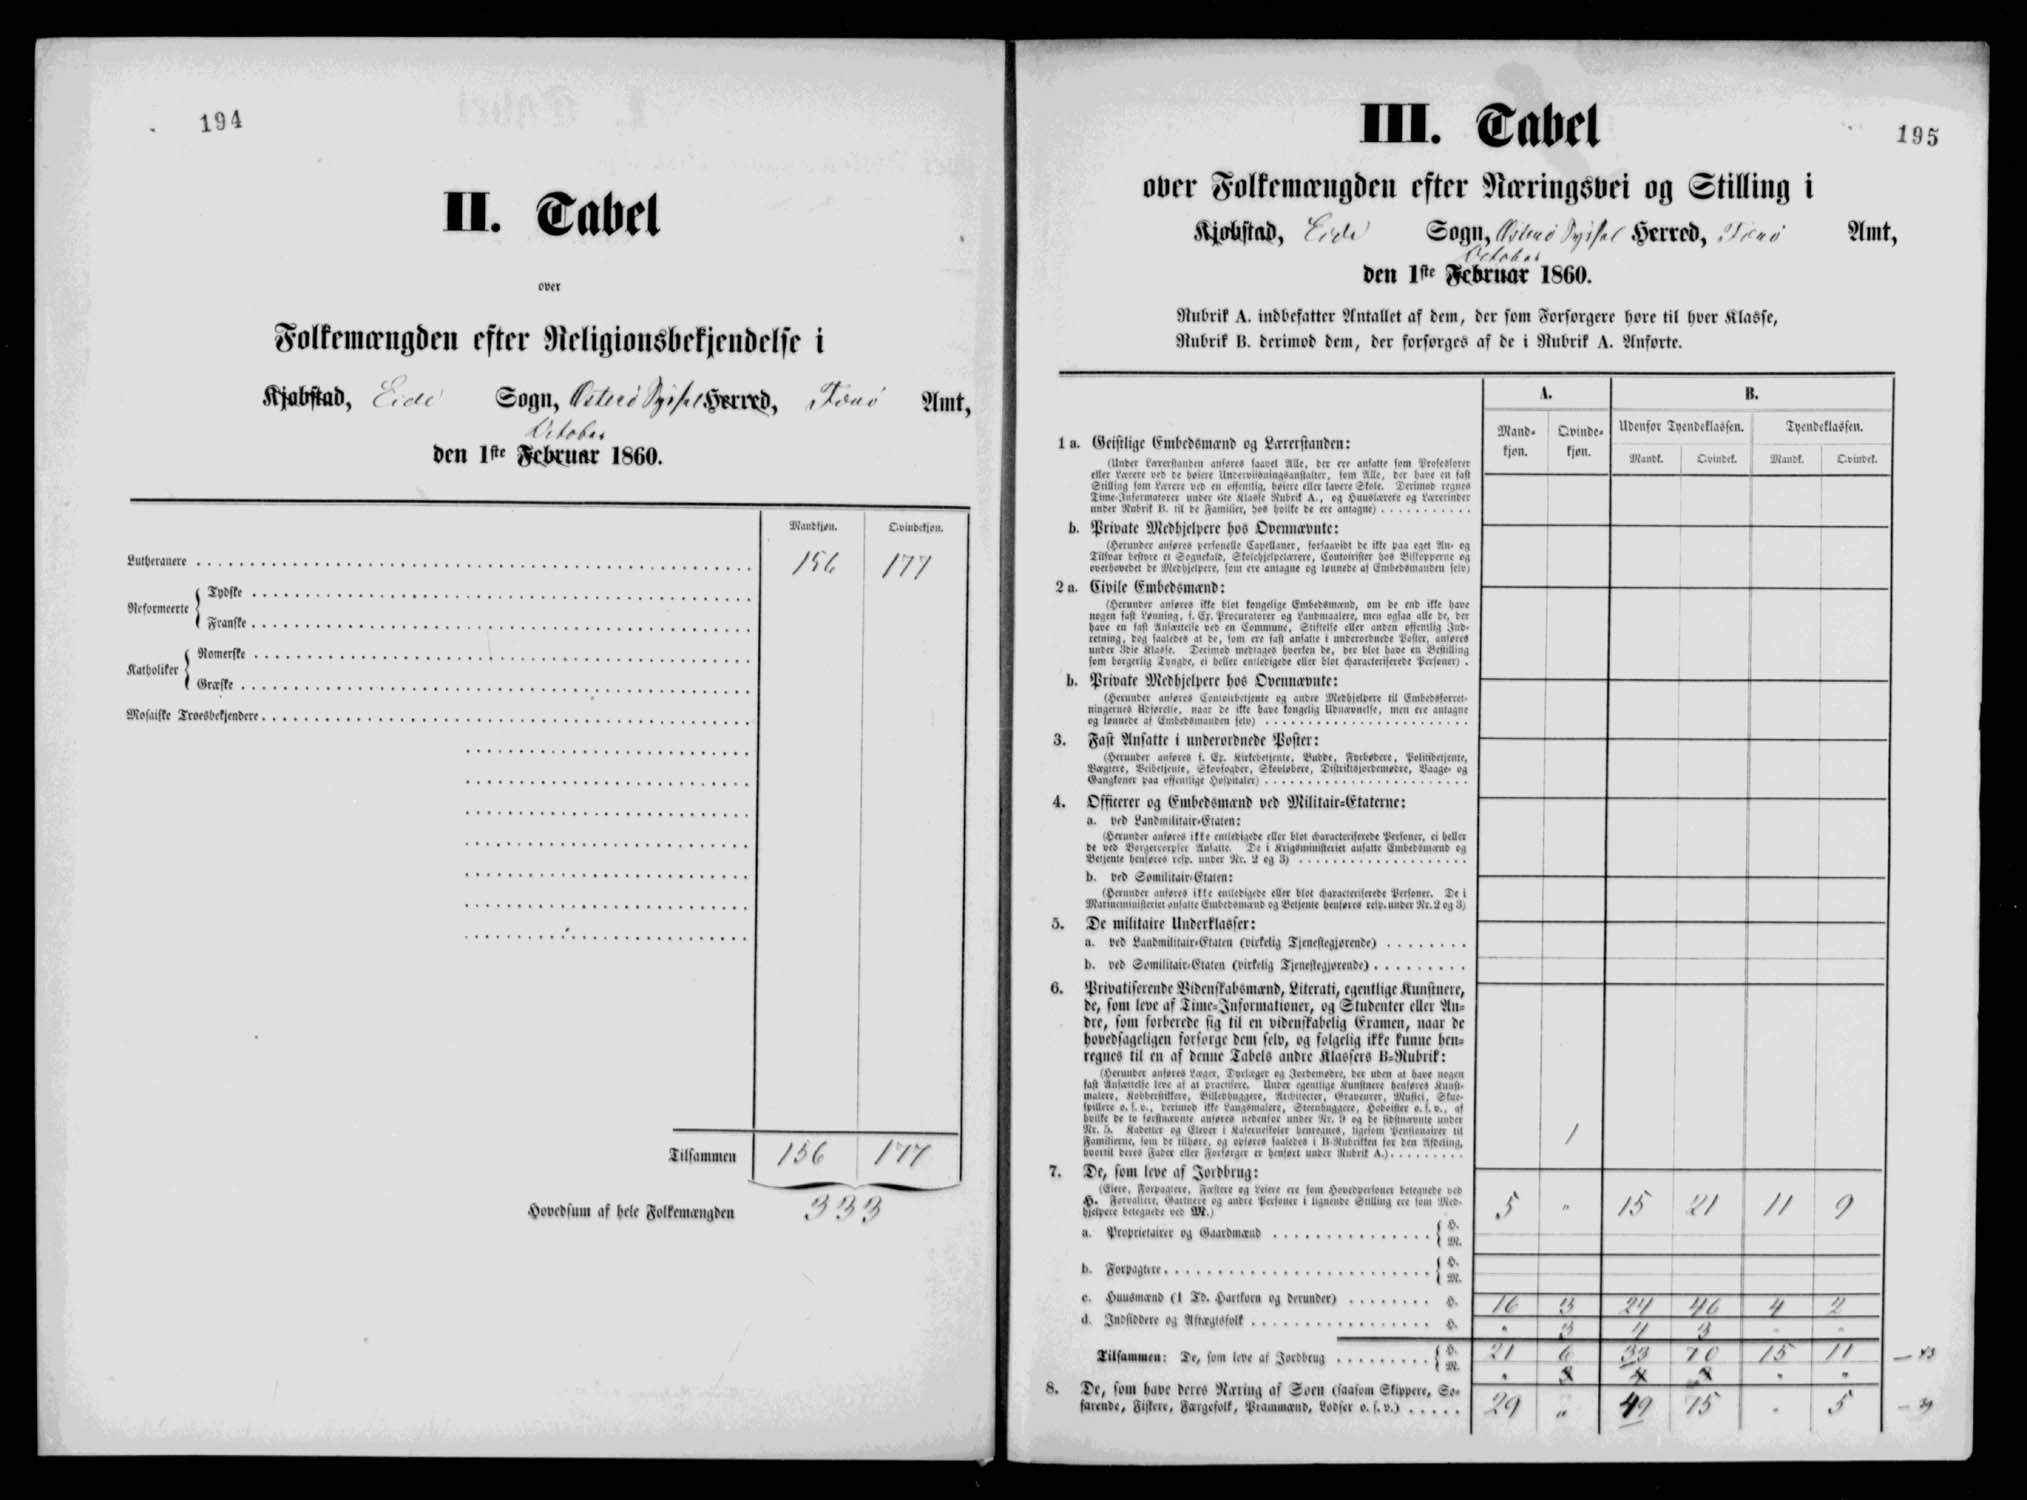 194
II. Tabel
over
Folkemængden efter Religionsbekjendelse i
Kjøbstad, Eide Sogn, Østerø Syssel Herred, Færø Amt,
October
den 1ste Februar 1860.
Mandkjøn. Qvindekjøn.
Lutheranere 156 177
Reformeerte
Tydske
Franske
Katholiker
Romerske
Græske
Mosaiske Troesbekjendere
Tilsammen 156 177
Hovedsum af hele Folkemængden 333
195
III. Tabel
over Folkemængden efter Næringsvei og Stilling i
Kjøbstad, Eide Sogn, Østerø Syssel Herred, Færø Amt,
October
den 1ste Februar 1860.
Rubrik A. indbefatter Antallet af dem, der som Forsørgere høre til hver Klasse,
Rubrik B. derimod dem, der forsørges af de i Rubrik A. Anførte.
A. B.
Mandkjøn. Qvindekjøn. Udenfor Tyendeklassen. Tyendeklassen.
Mandk. Qvindek. Mandk. Qvindek.
1 a. Geistlige Embedsmænd og Lærerstanden:
(Under Lærerstanden anføres saavel Alle, der ere ansatte som Professorer
eller Lærere ved de høiere Underviisningsanstalter, som Alle, der have en fast
Stilling som Lærere ved en offentlig, høiere eller lavere Skole. Derimod regnes
Time-Informatorer under 6te Klasse Rubrik A., og Huuslærere og Lærerinder
under Rubrik B. til de Familier, hos hvilke de ere antagne)
b. Private Medhjelpere hos Ovennævnte:
(Herunder anføres personelle Capellaner, forsaavidt de ikke paa eget An- og
Tilsvar bestyre et Sognekald, Skolehjelpelærere, Contoirister hos Biskopperne og
overhovedet de Medhjelpere, som ere antagne og lønnede af Embedsmanden selv)
2 a. Civile Embedsmænd:
(Herunder anføres ikke blot kongelige Embedsmænd, om de end ikke have
nogen fast Lønning, f. Ex. Procuratorer og Landmaalere, men ogsaa alle de, der
have en fast Ansættelse ved en Commune, Stiftelse eller anden offentlig Ind-
retning, dog saaledes at de, som ere fast ansatte i underordnede Poster, anføres
under 3die Klasse. Derimod medtages hverken de, der blot have en Bestilling
som borgerlig Tyngde, ei heller entledigede eller blot characteriserede Personer)
b. Private Medhjelpere hos Ovennævnte:
(Herunder anføres Contoirbetjente og andre Medhjelpere til Embedsforret-
ningernes Udførelse, naar de ikke have kongelig Udnævnelse, men ere antagne
og lønnede af Embedsmanden selv)
3. Fast Ansatte i underordnede Poster:
(Herunder anføres f. Ex. Kirkebetjente, Budde, Fyrbødere, Politibetjente,
Vægtere, Veibetjente, Skovfogder, Skovløbere, Distriktsjordemødre, Vaage- og
Gangkoner paa offentlige Hospitaler)
4. Officerer og Embedsmænd ved Militair-Etaterne:
a. ved Landmilitair-Etaten:
(Herunder anføres ikke entledigede eller blot characteriserede Personer, ei heller
de ved Borgercorpser Ansatte. De i Krigsministeriet ansatte Embedsmænd og
Betjente henføres resp. under Nr. 2 og 3)
b. ved Sømilitair-Etaten:
(Herunder anføres ikke entledigede eller blot characteriserede Personer. De i
Marineministeriet ansatte Embedsmænd og Betjente henføres resp. under Nr. 2 og 3)
5. De militaire Underklasser:
a. ved Landmilitair-Etaten (virkelig Tjenestegjørende)
b. ved Sømilitair-Etaten (virkelig Tjenestegjørende)
6. Privatiserende Videnskabsmænd, Literati, egentlige Kunstnere,
de, som leve af Time-Informationer, og Studenter eller An-
dre, som forberede sig til en videnskabelig Examen, naar de
hovedsageligen forsørge dem selv, og følgelig ikke kunne hen-
regnes til en af denne Tabels andre Klassers B-Rubrik:
(Herunder anføres Læger, Dyrlæger og Jordemødre, der uden at have nogen
fast Ansættelse leve af at practisere. Under egentlige Kunstnere henføres Kunst-
malere, Kobberstikkere, Billedhuggere, Architecter, Graveurer, Musici, Skue-
spillere o. s. v., derimod ikke Laugsmalere, Steenhuggere, Hoboister o. s. v., af
hvilke de to førstnævnte anføres nedenfor under Nr. 9 og de sidstnævnte under
Nr. 5. Kadetter og Elever i Kaserneskoler henregnes, ligesom Pensionairer til
Familierne, som de tilhøre, og opføres saaledes i B-Rubrikken for den Afdeling,
hvortil deres Fader eller Forsørger er henført under Rubrik A.) 1
7. De, som leve af Jordbrug:
(Eiere, Forpagtere, Fæstere og Leiere ere som Hovedpersoner betegnede ved
H. Forvaltere, Gartnere og andre Personer i lignende Stilling ere som Med-
hjelpere betegnede ved M.)
a. Proprietairer og Gaardmænd H. 5 " 15 21 11 9
M.
b. Forpagtere H.
M.
c. Huusmænd (1 Td. Hartkorn og derunder) H. 16 3 24 46 4 2
d. Indsiddere og Aftægtsfolk H. " 3 4 3 " "
Tilsammen: De, som leve af Jordbrug H. 21 6 33 70 15 11
M.
8. De, som have deres Næring af Søen (saasom Skippere, Sø-
farende, Fiskere, Færgefolk, Prammænd, Lodser o. s. v.) 29 " 49 75 " 5